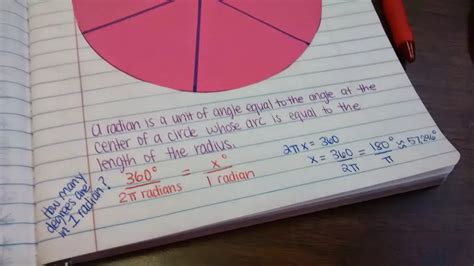 a radian is a unit of angle equal to the angle at the
center of a circle whose arc is equal to the
length of the radius.
How many
degrees are
in 1 radian?
360° / 2π radians = x° / 1 radian
2πx = 360
x = 360 / 2π = 180° / π ≈ 57.296°